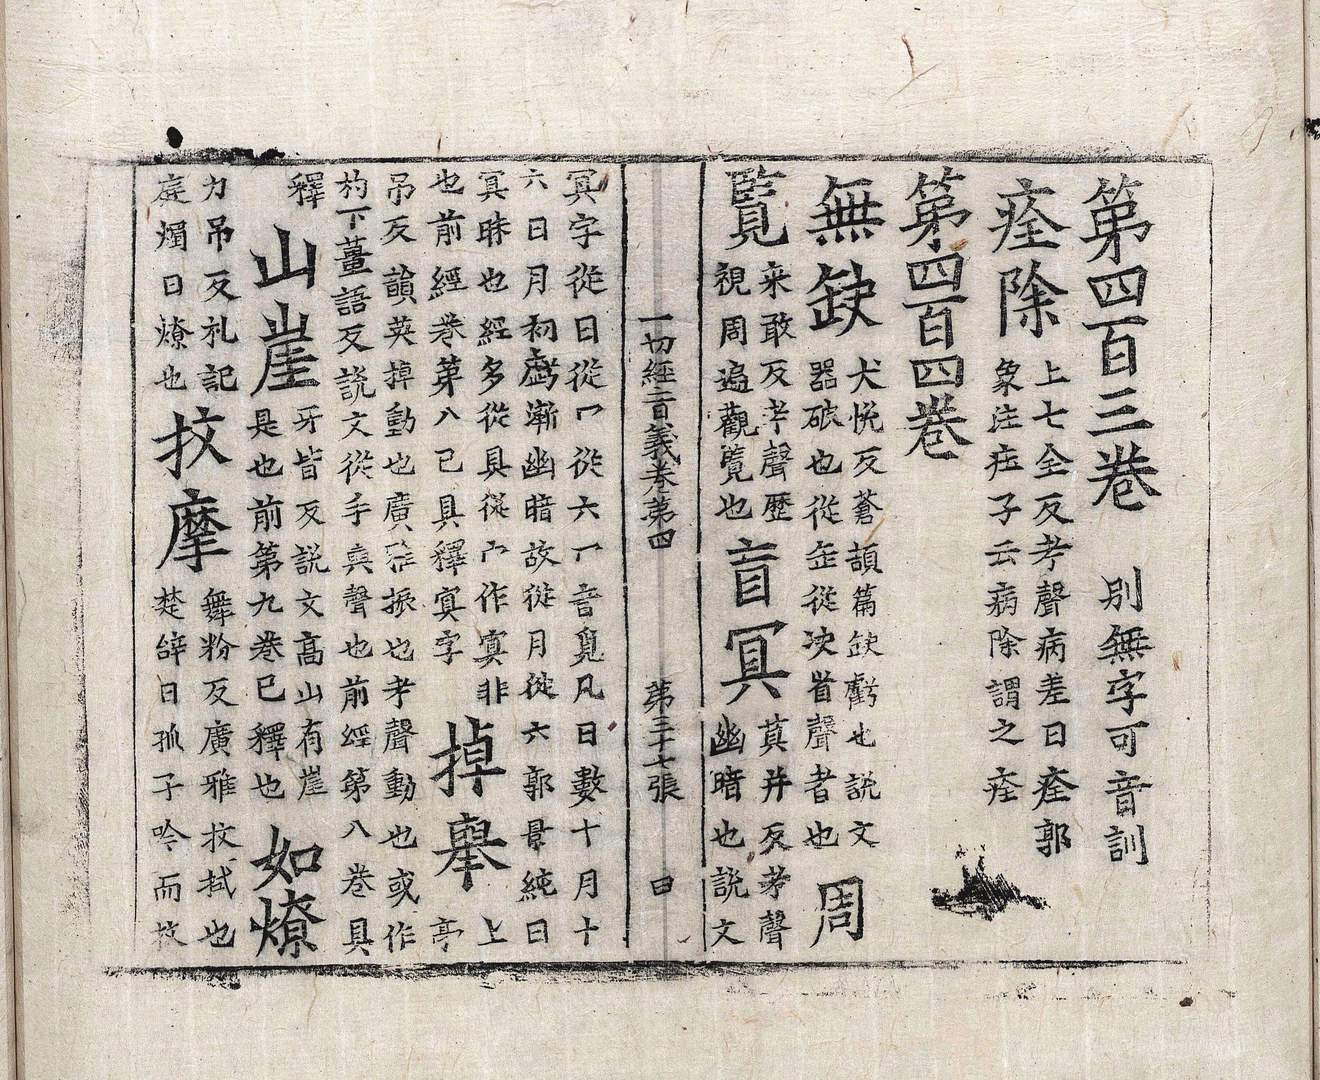 第四百三卷　別無字可音訓
痊除　上七全反考聲病差曰痊郭
象注莊子云病除謂之痊
第四百四卷
無缺　犬悅反蒼頡篇缺虧也說文
器破也從缶從決省聲者也
周
覽　來敢反考聲歷
視周遍觀覽也
盲冥　莫并反考聲
幽暗也說文
一切經音義卷第四　第三十七張　曰
冥字從日從冖從六冖音覓凡日數十月十
六日月初虧漸幽暗故從月從六郭景純曰
冥昧也經多從具從宀作寘非
也前經卷第八已具釋寘字
掉舉　上
亭
吊反韻英掉動也廣雅振也考聲動也或作
杓下薑語反說文從手與聲也前經第八卷具
釋
山崖　牙皆反說文高山有崖
是也前第九卷已釋也
如燎
力吊反礼記
庭燭曰燎也
抆摩　舞粉反廣雅抆拭也
楚辭曰孤子吟而抆